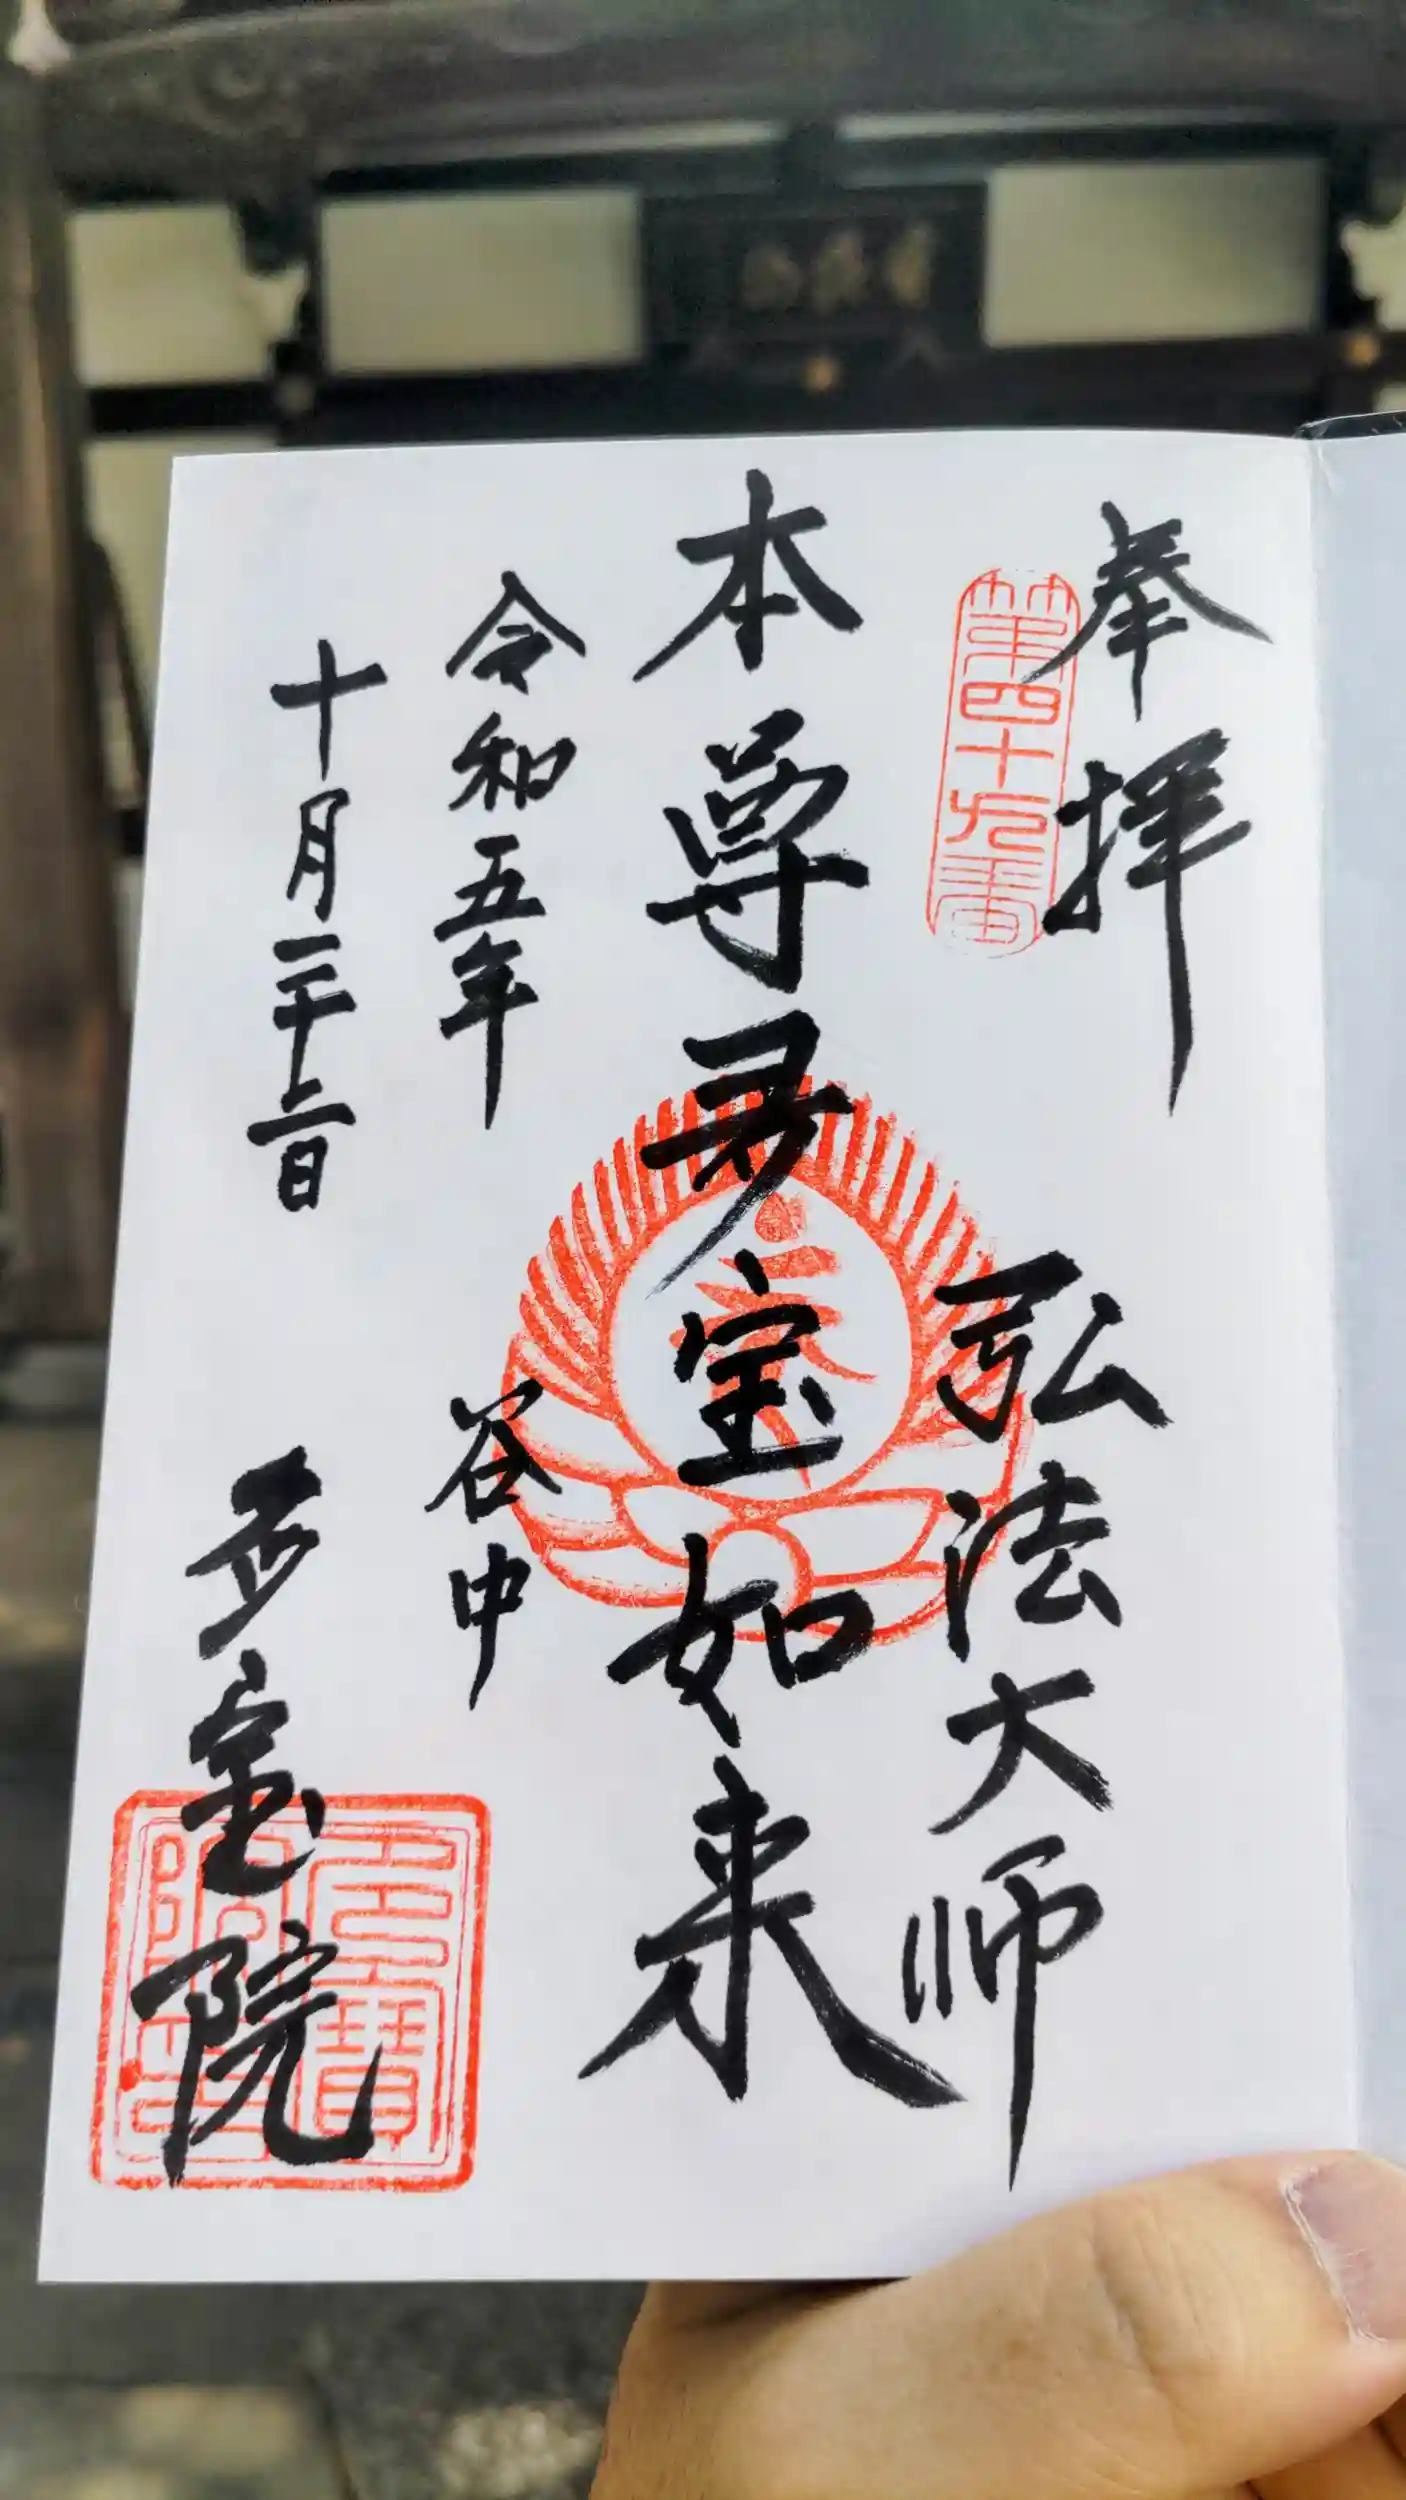 奉拝
第四十九番
弘法大師
本尊多宝如来
令和五年
十月二十二日
谷中
多宝院